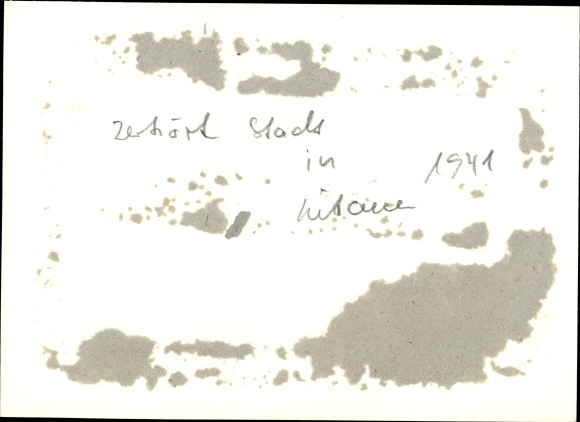 zerstört Stadt
in 1941
Litauen